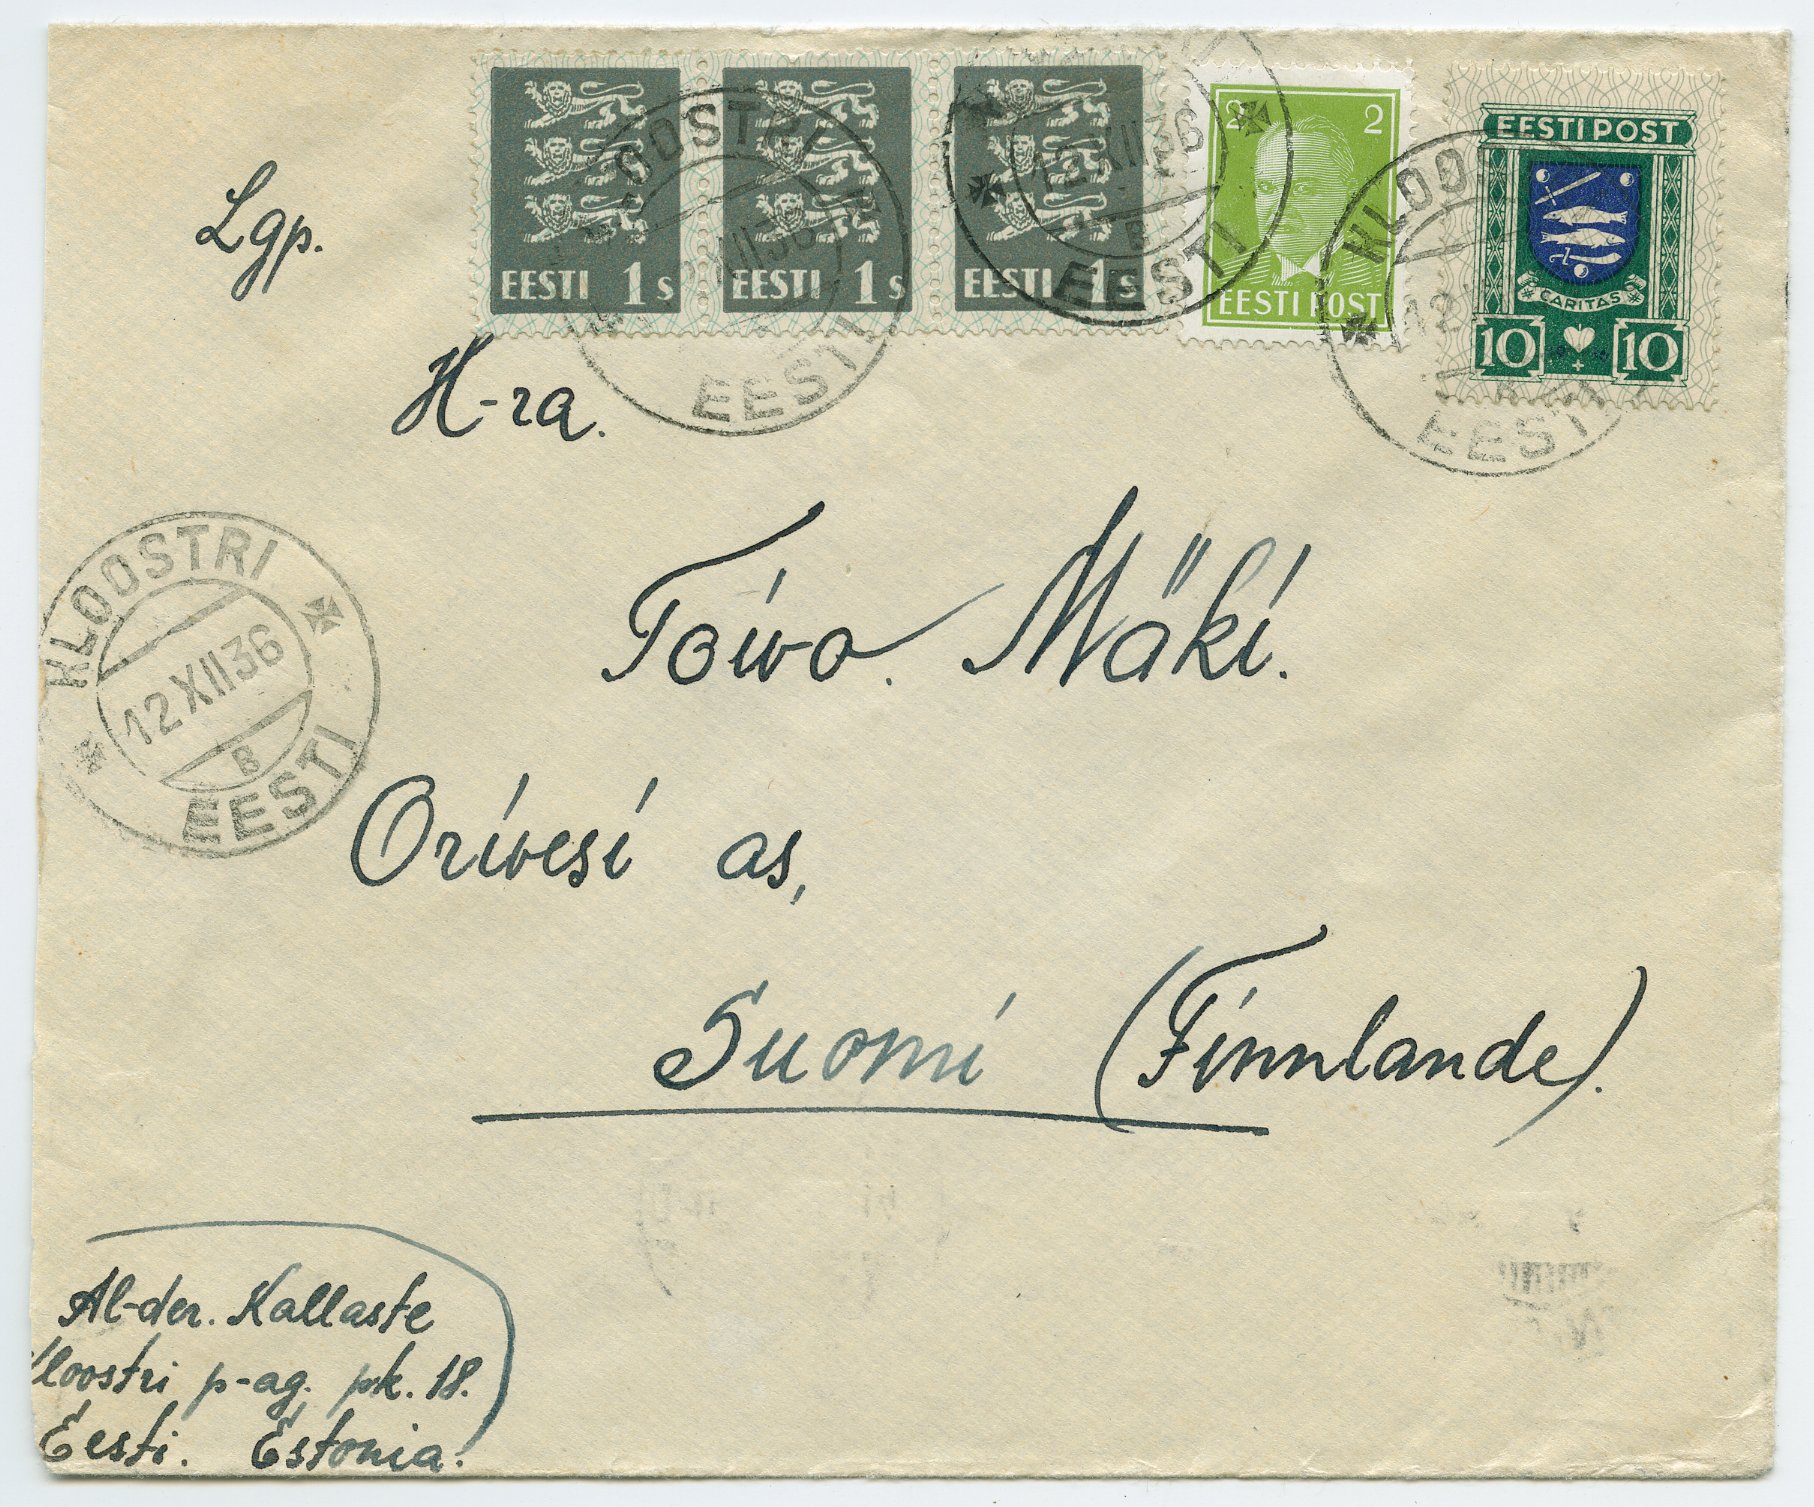 EESTI 1 s
EESTI 1 s
EESTI 1 s
2 2
EESTI POST
EESTI POST
CARITAS
10 10
KLOOSTRI
EESTI
12 XII 36
B
EESTI
KLOOSTRI
EESTI
Lgp.
H-ra.
Toivo. Mäki.
KLOOSTRI
12 XII 36
B
EESTI
Orivesi as,
Suomi (Finnlande).
Al-der. Kallaste
Kloostri p-ag. pk. 18.
Eesti. Estonia.